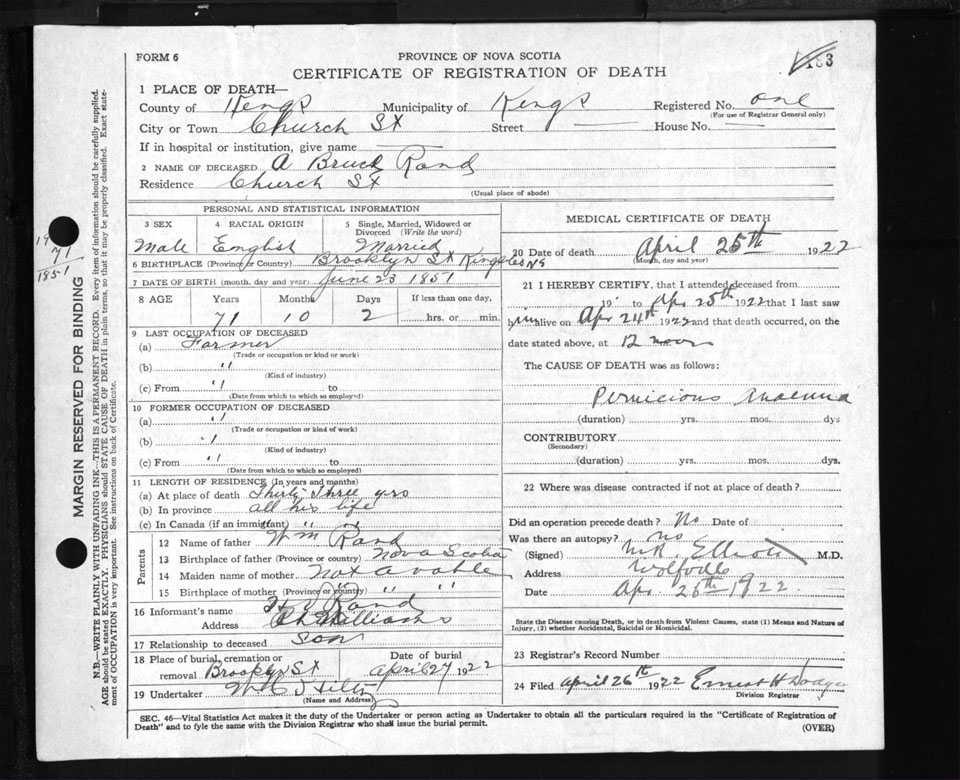 FORM 6
PROVINCE OF NOVA SCOTIA
183
CERTIFICATE OF REGISTRATION OF DEATH
1 PLACE OF DEATH—
County of Kings Municipality of Kings Registered No. one
(For use of Registrar General only)
City or Town Church St Street House No.
If in hospital or institution, give name
2 NAME OF DECEASED A Bruce Rand
Residence Church St
(Usual place of abode)
PERSONAL AND STATISTICAL INFORMATION
3 SEX 4 RACIAL ORIGIN 5 Single, Married, Widowed or Divorced (Write the word)
Male English Married
6 BIRTHPLACE (Province or Country) Brooklyn St Kings Co NS
7 DATE OF BIRTH (month, day and year) June 23 1851
8 AGE Years Months Days If less than one day.
71 10 2 hrs. or min.
9 LAST OCCUPATION OF DECEASED
(a) Farmer
(Trade or occupation or kind or work)
(b) "
(Kind of industry)
(c) From " to
(Date from which to which so employed)
10 FORMER OCCUPATION OF DECEASED
(a) "
(Trade or occupation or kind of work)
(b) "
(Kind of industry)
(c) From " to
(Date from which to which so employed)
11 LENGTH OF RESIDENCE (In years and months)
(a) At place of death Thirty Three yrs
(b) In province all his life
(c) In Canada (if an immigrant) " " "
Parents
12 Name of father Wm Rand
13 Birthplace of father (Province or country) Nova Scotia
14 Maiden name of mother Not
15 Birthplace of mother (Province or country) " " "
16 Informant's name Rand
Address Pt Williams
17 Relationship to deceased Son
18 Place of burial, cremation or removal Brooklyn St
Date of burial April 27 1922
19 Undertaker
(Name and Address)
MEDICAL CERTIFICATE OF DEATH
20 Date of death April 25th 1922
(Month, day and year)
21 I HEREBY CERTIFY, that I attended deceased from
19 to Apr 25th 1922 that I last saw
him alive on Apr 24th 1922 and that death occurred, on the
date stated above, at 12 noon
The CAUSE OF DEATH was as follows:
Pernicious Anaemia
(duration) yrs. mos. dys
CONTRIBUTORY
(Secondary)
(duration) yrs. mos. dys.
22 Where was disease contracted if not at place of death?
Did an operation precede death? No Date of
Was there an autopsy? no
(Signed) Elliott M.D.
Address Wolfville
Date Apr. 26th 1922
State the Disease causing Death, or in death from Violent Causes, state (1) Means and Nature of
Injury, (2) whether Accidental, Suicidal or Homicidal.
23 Registrar's Record Number
24 Filed April 26th 1922 Ernest H Dodge
Division Registrar
SEC. 46—Vital Statistics Act makes it the duty of the Undertaker or person acting as Undertaker to obtain all the particulars required in the "Certificate of Registration of
Death" and to fyle the same with the Division Registrar who shall issue the burial permit.
(OVER)
MARGIN RESERVED FOR BINDING
N.B.—WRITE PLAINLY WITH UNFADING INK—THIS IS A PERMANENT RECORD. Every item of information should be carefully supplied.
AGE should be stated EXACTLY. PHYSICIANS should STATE CAUSE OF DEATH in plain terms, so that it may be properly classified. Exact state-
ment of OCCUPATION is very important. See instructions on back of Certificate.
71
1851